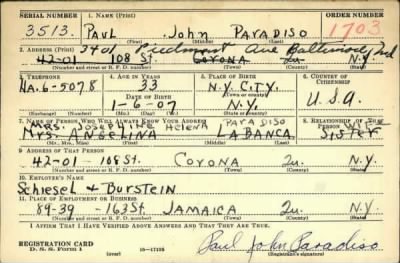 SERIAL NUMBER 1. NAME (Print) ORDER NUMBER
3513. PAUL John PARADISO 1703
(First) (Middle) (Last)
3401 Piedmont Ave Baltimore, Md
2. ADDRESS (Print)
42-01 108 St. CORONA Qu. N.Y.
(Number and street or R. F. D. number) (Town) (County) (State)
3. TELEPHONE 4. AGE IN YEARS 5. PLACE OF BIRTH 6. COUNTRY OF CITIZENSHIP
HA.6-5078 33 N.Y. CITY.
DATE OF BIRTH (Town or county)
1-6-07 N.Y. U.S.A.
(Exchange) (Number) (Mo.) (Day) (Yr.) (State or country)
7. NAME OF PERSON WHO WILL ALWAYS KNOW YOUR ADDRESS 8. RELATIONSHIP OF THAT PERSON
MRS. Josephine Helena PARADISO WIFE
MRS. ANGELINA LABANCA SISTER
(Mr., Mrs., Miss) (First) (Middle) (Last)
9. ADDRESS OF THAT PERSON
42-01-108 St. CORONA Qu. N.Y.
(Number and street or R. F. D. number) (Town) (County) (State)
10. EMPLOYER'S NAME
Schiesel & Burstein
11. PLACE OF EMPLOYMENT OR BUSINESS
89-39 - 163 St. JAMAICA Qu. N.Y.
(Number and street or R. F. D. number) (Town) (County) (State)
I AFFIRM THAT I HAVE VERIFIED ABOVE ANSWERS AND THAT THEY ARE TRUE.
REGISTRATION CARD
D. S. S. Form 1 (over) 16-17105 Paul John Paradiso
(Registrant's signature)